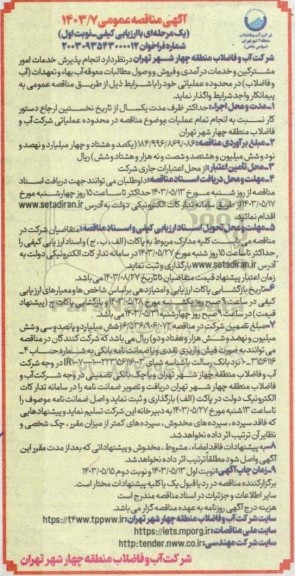 آگهی مناقصه عمومی ۱۴۰۳/۷
(یک مرحله‌ای با ارزیابی کیفی-نوبت اول)
شماره فراخوان ۲۰۰۳۰۹۳۵۴۳۰۰۰۰۱۲
شرکت آب و فاضلاب منطقه چهار شهر تهران در نظر دارد انجام پذیرش خدمات امور
مشترکین و خدمات درآمدی و فروش و وصول مطالبات معوقه آب بهاء و تعهدات (آب
و فاضلاب) در محدوده عملیاتی خود را با شرایط ذیل از طریق مناقصه عمومی به
پیمانکار واجد شرایط واگذار نماید.
۱-مدت و محل اجرا: حداکثر ظرف مدت یکسال از تاریخ نخستین ارجاع دستور
کار نسبت به انجام تمام عملیات موضوع مناقصه در محدوده عملیاتی شرکت آب و
فاضلاب منطقه چهار شهر تهران
۲-مبلغ برآوردی مناقصه: (یکصد و هشتاد و چهار میلیارد و نهصد و
نود و شش میلیون و هشتصد و شصت و نه هزار و هشتاد و شش) ریال
۳-محل تأمین اعتبار: از محل اعتبارات جاری شرکت
۴-مهلت و محل دریافت اسناد مناقصه: داوطلبان می‌توانند جهت دریافت اسناد
مناقصه از روز شنبه مورخ ۱۴۰۳/۰۵/۱۳ حداکثر تا ساعت ۱۵ روز چهارشنبه مورخ
۱۴۰۳/۰۵/۱۷ از طریق سامانه تدارکات الکترونیکی دولت به آدرس www.setadiran.ir
اقدام نمایند
۵-مهلت و محل تحویل اسناد ارزیابی کیفی و اسناد مناقصه: متقاضیان شرکت در
مناقصه می‌بایست کلیه مدارک مربوط به پاکات (الف، ب، ج) و اسناد ارزیابی کیفی را
حداکثر تا ساعت ۱۵ روز شنبه مورخ ۱۴۰۳/۰۵/۲۷ در سامانه تدارکات الکترونیکی دولت به
آدرس www.setadiran.ir بارگذاری و ثبت نمایند.
زمان اعتبار پیشنهاد قیمت متقاضیان تا تاریخ ۱۴۰۳/۰۸/۲۷ می‌باشد.
۶-تاریخ بازگشایی پاکات ارزیابی و امتیازدهی براساس شاخص‌ها و معیارهای ارزیابی
کیفی در ساعت ۹ صبح روز یکشنبه مورخ ۱۴۰۳/۰۵/۲۸ و بازگشایی پاکات ج (پیشنهاد
قیمت) در ساعت ۹ صبح روز چهارشنبه ۱۴۰۳/۰۵/۳۱ می‌باشد.
۷-مبلغ تضمین شرکت در مناقصه: (شش میلیارد و پانصد و سی و شش
میلیون و نهصد و شش هزار و هفتاد و دو) ریال می‌باشد که شرکت کنندگان در مناقصه
می‌توانند به صورت فیش واریزی نقدی و یا ضمانت نامه بانکی به شماره حساب
نزد بانک رسالت با شناسه شبای در وجه شرکت
آب و فاضلاب منطقه چهار شهر تهران و یا چک بانکی تضمینی در وجه شرکت آب و
فاضلاب منطقه چهار شهر تهران دریافت و تصویر ضمانت نامه را در سامانه تدارکات
الکترونیک دولت در پاکت (الف) بارگذاری و ثبت نماید و اصل ضمانت‌نامه موصوف را
تا ساعت ۱۳ شنبه مورخ ۱۴۰۳/۰۵/۲۷ به دبیرخانه این شرکت تسلیم نماید و پیشنهادهایی
که فاقد سپرده، سپرده‌های مخدوش، سپرده‌های کمتر از میزان مقرر، چک شخصی و
نظایر آن ترتیب اثر داده نخواهد شد.
۸-به پیشنهادات فاقد امضاء، مشروط، مخدوش و پیشنهاداتی که بعد از مدت مقرر این
آگهی واصل شود مطلقاً ترتیب اثر داده نخواهد شد.
۹-زمان چاپ آگهی: نوبت اول ۱۴۰۳/۰۵/۱۳ و نوبت دوم ۱۴۰۳/۰۵/۱۵
برگزارکننده مناقصه در رد یا قبول یک یا کلیه پیشنهادات مختار است.
سایر اطلاعات و جزئیات در اسناد مناقصه مندرج است
هزینه درج آگهی روزنامه به عهده مناقصه گزار می‌باشد.
سایت شرکت آب و فاضلاب منطقه چهار شهر تهران: https://t4ww.tppww.ir
سایت ملی مناقصات: https://iets.mporg.ir
سایت شرکت مهندسی: http:tender.nww.co.ir
شرکت آب و فاضلاب منطقه چهار شهر تهران